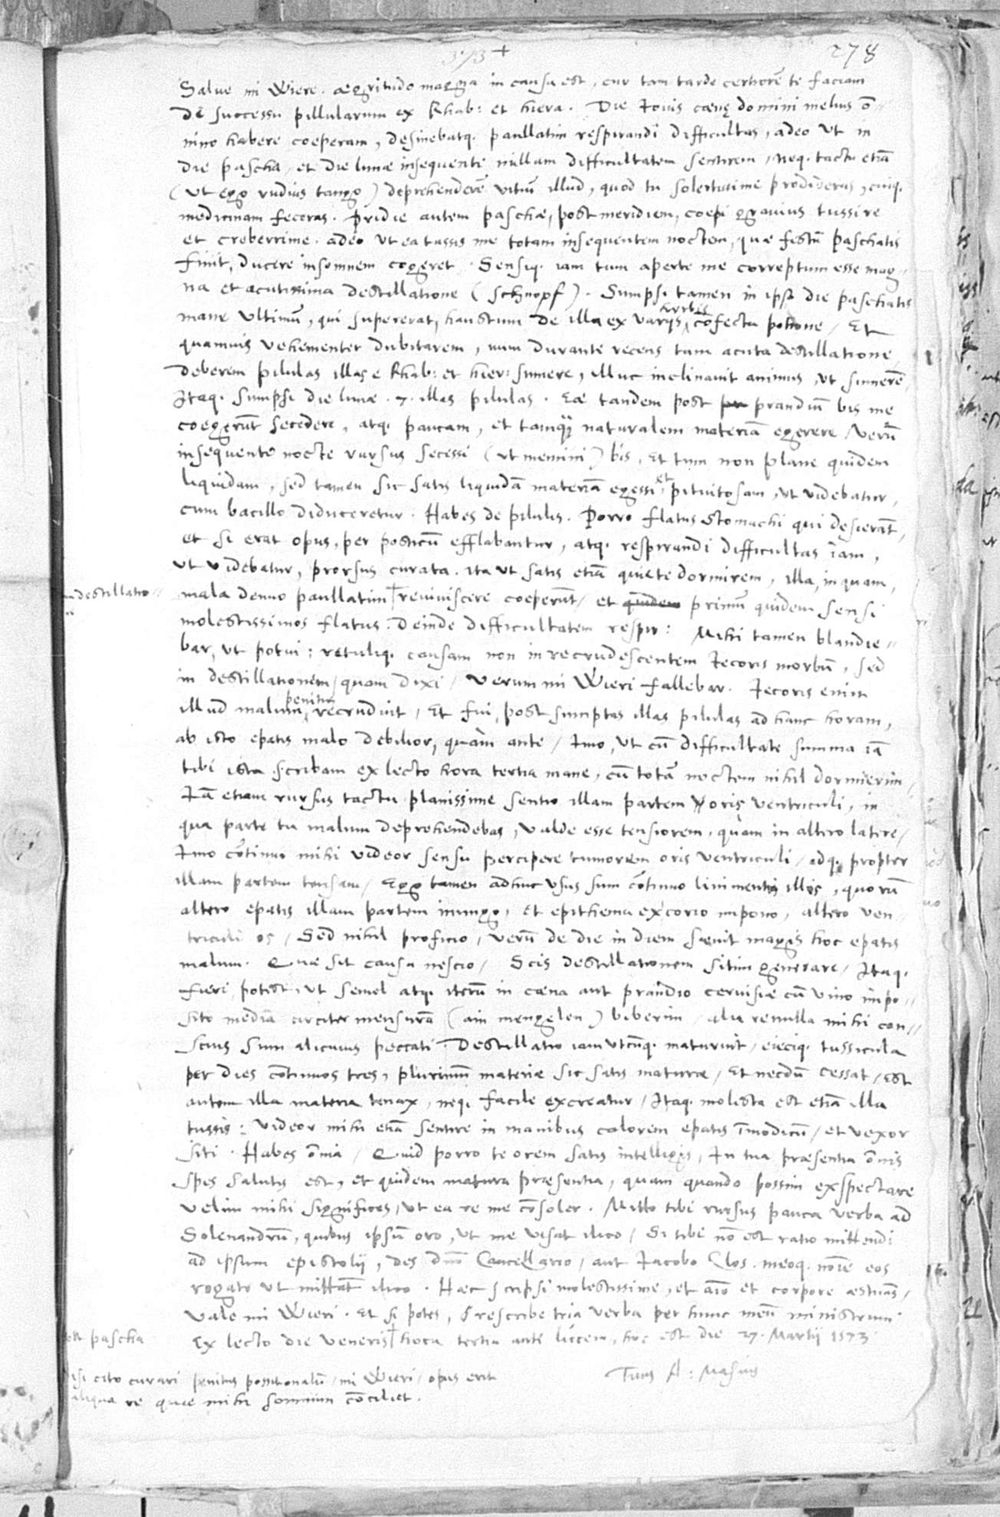 1573 +
278
Salue mi Wiere. aegritudo magna in causa est, cur tam tarde certiorē te faciam
de successu pillularum ex Rhab: et hiera. Die Iouis cænę domini melius ō-
nino habere coeperam, desinebatq. paullatim respirandi difficultas, adeo ut in
die pascha, et die lunae insequente nullam difficultatem sentirem, neq. tactu etiā
(ut ego rudius tango) deprehenderē uitiū illud, quod tu solertissime prodideras, cuiq.
medicinam feceras. Pridie autem paschae, post meridiem, coepi grauius tussire
et creberrime. adeo ut ea tussis me totam insequentem noctem, quae festū paschatis
fuit, ducere insomnem cogeret. Sensiq. iam tum aperte me correptum esse mag-
na et acutissima destillatione (schnopf). Sumpsi tamen in ipso die paschatis
mane ultimū, qui supererat, haustum de illa ex uariis herbis cōfecta potione, Et
quamuis uehementer dubitarem, num durante recens tum acuta destillatione
deberem pilulas illas e Rhab: et hier: sumere, illuc inclinauit animus, ut sumerē
Itaq. sumpsi die lunae .7. illas pilulas. Eae tandem post prandiū bis me
coegerūt secedere, atq. paucam, et tamq. naturalem materiā egerere, Verū
insequente nocte rursus secessi (ut memini) bis, Et tum non plane quidem
liquidam, sed tamen sic satis liquidā materiā egessi et pituitosam, ut uidebatur,
cum bacillo diduceretur. Habes de pilulis. Porro flatus stomachi qui desierāt,
et si erat opus, per posticū efflabantur, atq. respirandi difficultas iam,
ut uidebatur, prorsus curata. ita ut satis etiā quiete dormirem, illa, inquam,
destillatio-
mala denuo paullatim reuiuiscere coeperūt, et quidem primū quidem sensi
molestissimos flatus. Deinde difficultatem respir: Mihi tamen blandie-
bar, ut potui; retuliq. causam non in recrudescentem Iecoris morbū, sed
in destillationem, quam dixi, Verum mi Wieri fallebar. Iecoris enim
illud malum penitus recruduit, Et fui, post sumptas illas pilulas ad hanc horam,
ab isto epatis malo debilior, quàm ante, Imo, ut cū difficultate summa iā
tibi ista scribam ex lecto hora tertia mane, cū totā noctem nihil dormierim,
Iā etiam rursus tactu planissime sentio illam partem oris uentriculi, in
qua parte tu malum deprehendebas, ualde esse tensiorem, quàm in altero latere,
Imo cōtinuo mihi uideor sensu percipere tumorem oris uentriculi, adq. propter
illam partem tensam, Ego tamen adhuc usus sum cōtinuo linimentis illis, quorū
altero epatis illam partem inungo, Et epithema ex corio impono, altero uen-
triculi os, Sed nihil proficio, uerū de die in diem saeuit magis hoc epatis
malum. Quae sit causa nescio, Scis destillationem sitim generare, Itaq.
fieri potest, ut semel atq. iterū in caena aut prandio ceruisiæ cū uino impo-
sito mediā circiter mensurā (ain mengelen) biberim, alia re nulla mihi con-
scius sum alicuius peccati. Destillatio iam utcūq. maturuit, eieciq. tussicula
per dies cōtinuos tres, plurimum materiæ sic satis maturæ, Et necdū cessat, Est
autem illa materia tenax, neq. facile excreatur, Itaq. molesta est etiā illa
tussis: Videor mihi etiā sentire in manibus calorem epatis īmodicū, et uexor
siti. Habes ōnia, Quid porro te orem satis intelligis, In tua præsentia ōnis
spes salutis est, et quidem matura præsentia, quam quando possim exspectare
uelim mihi significes, ut ea re me cōsoler. Mitto tibi rursus pauca uerba ad
Solenandrū, quibus ipsū oro, ut me uisat ilico, Si tibi nō est ratio mittendi
ad ipsum epistolij, des dnō Cancellario, aut Iacobo Clos. meoq. noīe eos
rogato ut mittāt ilico. Haec scripsi molestissime, et aīo et corpore aestuās,
Vale mi Wieri. Et si potes, rescribe tria uerba per hunc meū ministrum
pascha
Ex lecto die ueneris hora tertia ante lucem, hoc est die 27. Martij 1573
Tuus A: Masius
cito curari penitus possit malū, mi Wieri, opus erit
aliqua re quae mihi somnum cōciliet.